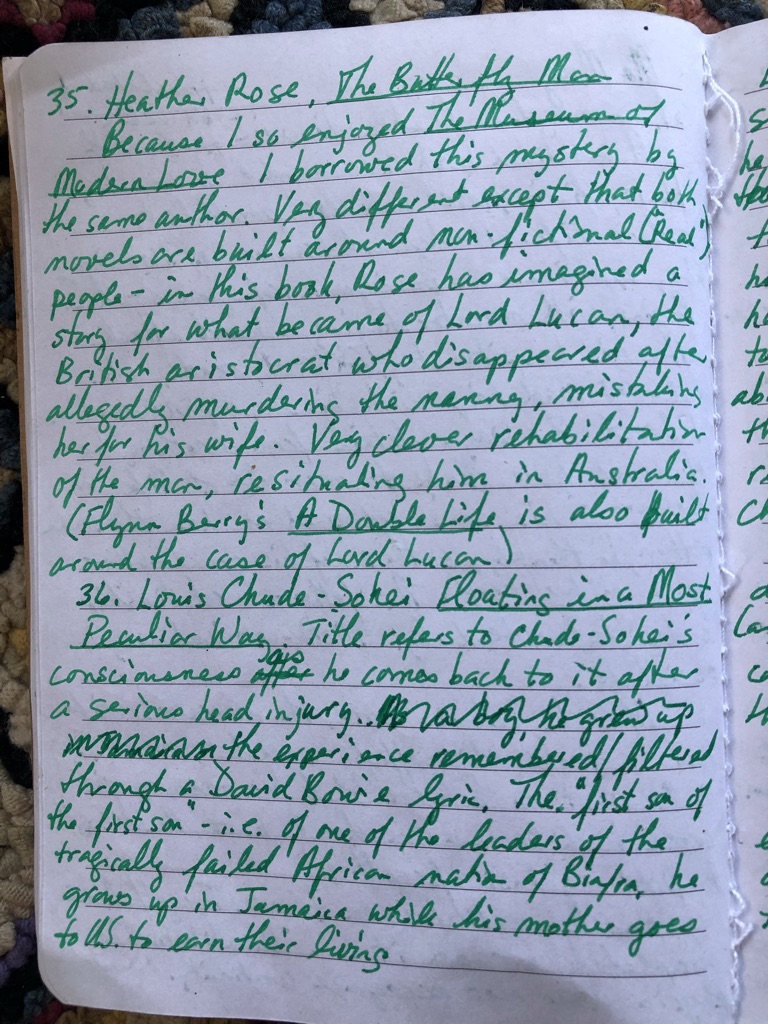 35. Heather Rose, The Butterfly Man
Because I so enjoyed The Museum of
Modern Love I borrowed this mystery by
the same author. Very different except that both
novels are built around non-fictional ("Real")
people - in this book, Rose has imagined a
story for what became of Lord Lucan, the
British aristocrat who disappeared after
allegedly murdering the nanny, mistaking
her for his wife. Very clever rehabilitation
of the man, resituating him in Australia.
(Flynn Berry's A Double Life is also built
around the case of Lord Lucan)
36. Louis Chude-Sokei Floating in a Most
Peculiar Way. Title refers to Chude-Sokei's
consciousness as he comes back to it after
a serious head injury.. As a boy, he grew up
the experience remembered/filtered
through a David Bowie lyric. The "first son of
the first son" - i.e. of one of the leaders of the
tragically failed African nation of Biafra, he
grows up in Jamaica while his mother goes
to U.S. to earn their living